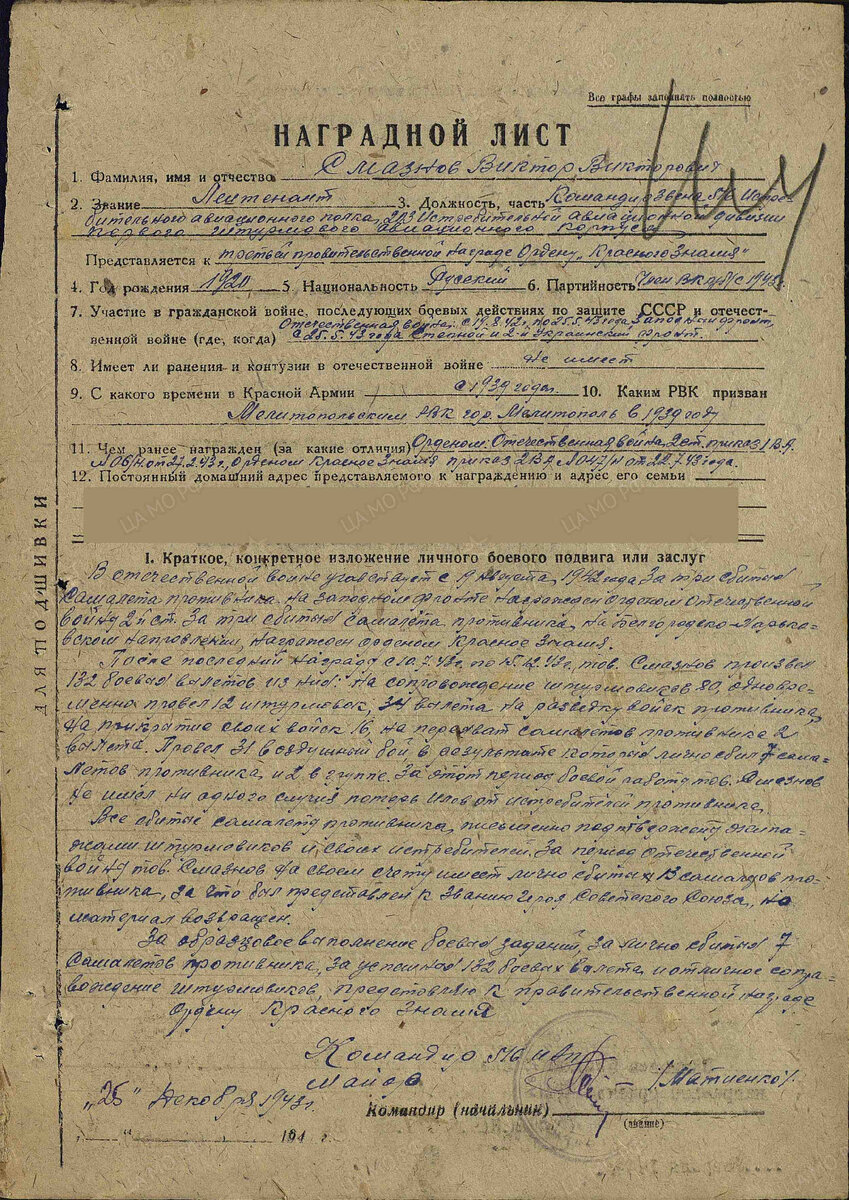 Все графы заполнять полностью
НАГРАДНОЙ ЛИСТ
1. Фамилия, имя и отчество Смазнов Виктор Викторович
2. Звание Лейтенант 3. Должность, часть Командир звена Истре-
бительного авиационного полка, Истребительной авиационной дивизии
первого штурмового авиационного корпуса
Представляется к третьей правительственной награде Ордену „Красного Знамя"
4. Год рождения 1920 5. Национальность Русский 6. Партийность Член ВКП/б/ с 1943
7. Участие в гражданской войне, последующих боевых действиях по защите СССР и отечест-
Отечественная война с 19.8.42г. по 25.5.43 года Западный фронт,
венной войне (где, когда) с 25.5.43 года Степной и 2-й Украинский фронт.
8. Имеет ли ранения и контузии в отечественной войне Не имеет
9. С какого времени в Красной Армии с 1939 года. 10. Каким РВК призван
Мелитопольским РВК гор. Мелитополь в 1939 году
11. Чем ранее награжден (за какие отличия) Орденом Отечественная война 2 ст. приказ 1 В.А.
№ 06/н от 27.2.43 г., Орденом Красное Знамя приказ 2 ВА № 047/н от 22.7.43 года.
12. Постоянный домашний адрес представляемого к награждению и адрес его семьи
I. Краткое, конкретное изложение личного боевого подвига или заслуг
В отечественной войне участвует с 19 Августа 1942 года. За три сбитых
самалета противника на западном фронте награжден Орденом Отечественной
войны 2й ст. За три сбитых самалета противника, на Белгородско-Харько-
вском направлении, награжден орденом Красное Знамя.
После последней награды с 10.7.43г. по 15.12.43г, тов. Смазнов произвел
132 боевых вылетов из них: на сопровождение штурмовиков 80, одновре-
менно провел 12 штурмовок, 34 вылета на разведку войск противника,
на прикрытие своих войск 16, на перехват самалетов противника 2
вылета. Провел 31 воздушный бой, в результате которых лично сбил 7 сама-
летов противника, и 2 в группе. За этот период боевой работы тов. Смазнов
не имел ни одного случая потерь илов от истребителей противника.
Все сбитые самалеты противника, письменно подтверждены экипа-
жами штурмовиков и своих истребителей. За период отечественной
войны тов. Смазнов на своем счету имеет лично сбитых 13 самалетов про-
тивника, за что был представлен к званию Героя Советского Союза, но
материал возвращен.
За образцовое выполнение боевых заданий, за лично сбитых 7
самалетов противника, за успешных 132 боевых вылета и отличное сопро-
вождение штурмовиков, представляю к правительственной награде
Ордену Красного Знамя
Командир иап
майор /Матиенко/.
„25" декабря 1943г.
Командир (начальник)
(звание)
„ " 194 г.
ДЛЯ ПОДШИВКИ
ЦА МО РФ